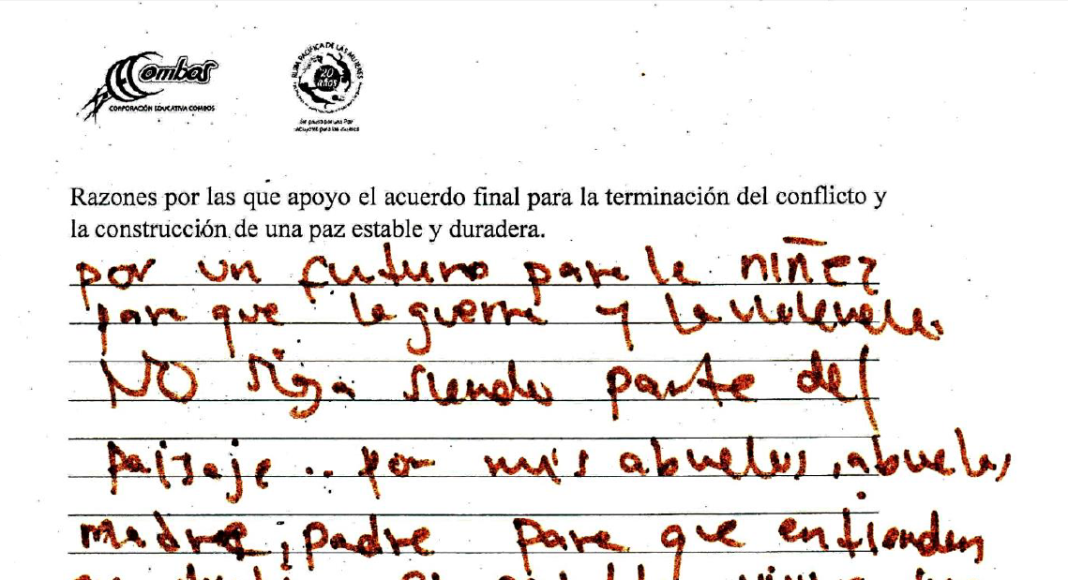 Combos
CORPORACIÓN EDUCATIVA COMBOS
RUTA PACÍFICA DE LAS MUJERES
20 años
Razones por las que apoyo el acuerdo final para la terminación del conflicto y
la construcción de una paz estable y duradera.
por un futuro para la niñez
para que la guerra y la violencia
NO siga siendo parte del
paisaje.. por mis abuelos, abuelas,
madre, padre para que entienden